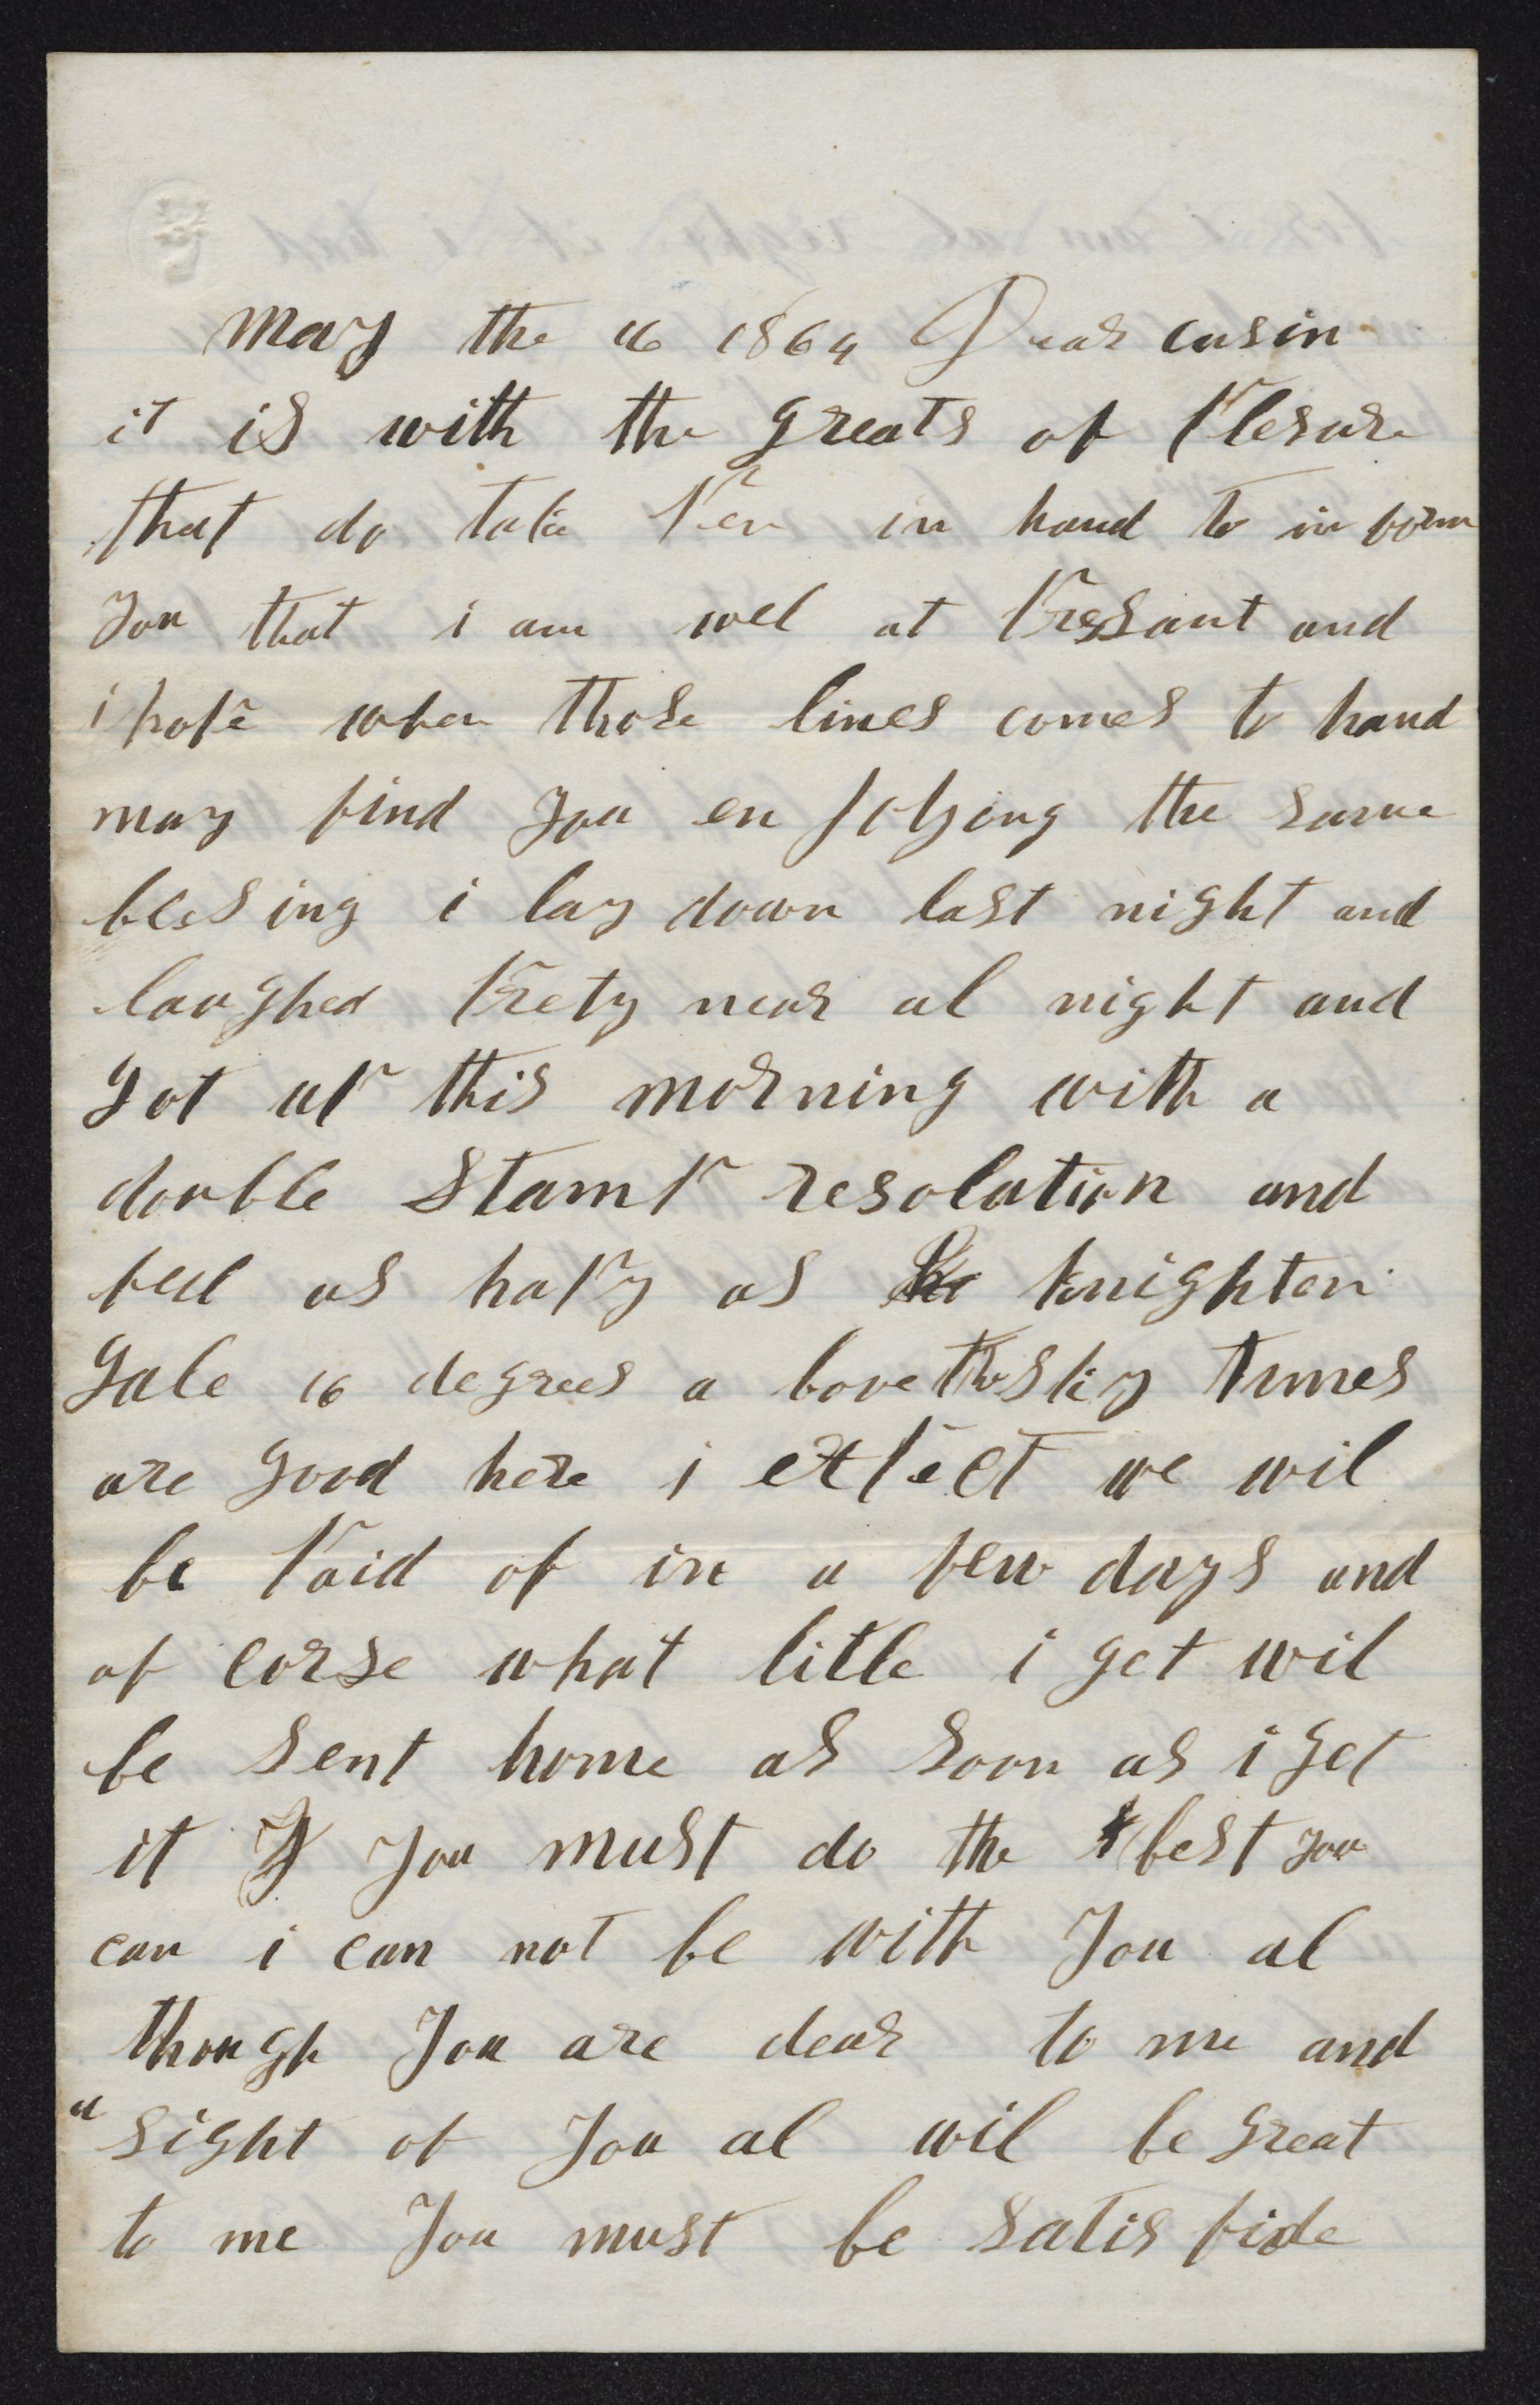 May the 16 1864 Dear cusin
it is with the greats of plesure
that do take pen in hand to in form
you that i am wel at pressant and
i hope when those lines comes to hand
may find you en joying the same
blessing i lay down last night and
laughed prety near al night and
got up this morning with a
double stamp resolution and
feel as happy as knighten
gale 16 degrees a bove the sky times
are good here i expect we wil
be paid of in a few days and
of corse what litle i get wil
be sent home as soon as i get
it you must do the best you
can i can not be with you al
though you are dear to me and
a sight of you al wil be great
to me you must be satis fide